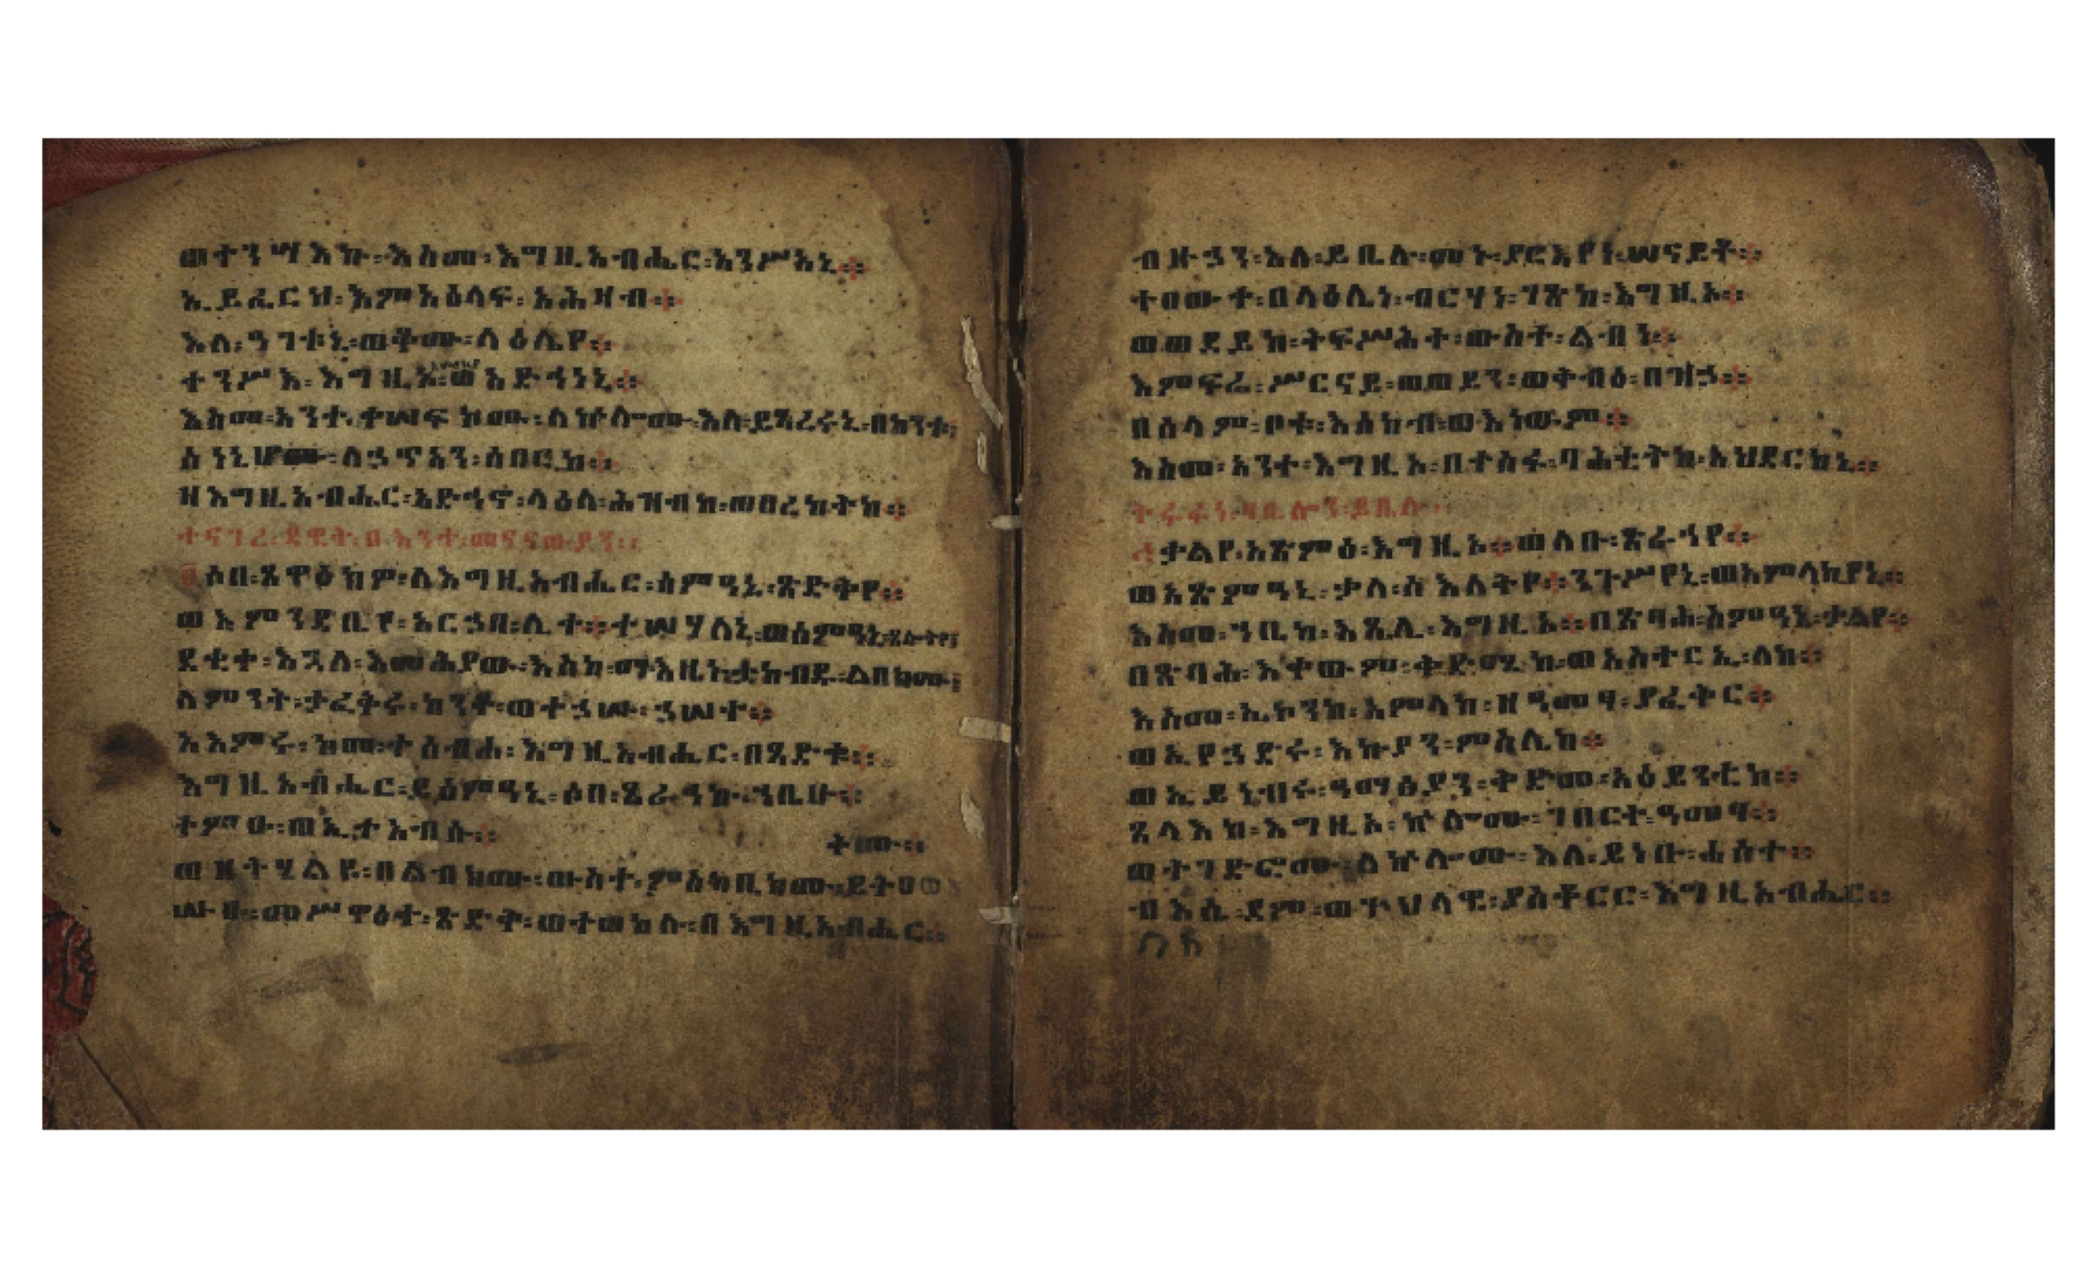 ወተንሣእኩ፡እስመ፡እግዚአብሔር፡አንሥአኒ።
ኢይፈርህ፡እምአዕላፍ፡አሕዛብ።
እለ፡ዓገቱኒ፡ወቆሙ፡ላዕሌየ።
ተንሥእ፡እግዚኦ፡ወአድኅነኒ።
እስመ፡አንተ፡ቀሠፍከሙ፡ለኵሎሙ፡እለ፡ይጻረሩኒ፡በከንቱ፤
ስነኒሆሙ፡ለኃጥአን፡ሰበርከ።
ዘእግዚአብሔር፡አድኅኖ፡ላዕለ፡ሕዝብከ፡ወበረከትከ።
ተናገረ፡ዳዊት፡በእንተ፡መናፍቃን።
ሶበ፡ጸዋዕክዎ፡ለእግዚአብሔር፡ሰምዓኒ፡ጽድቅየ።
ወእምንዳቤየ፡አርኃበ፡ሊተ።ተሣሃለኒ፡ወሰምዓኒ፡ጸሎትየ፤
ደቂቀ፡እጓለ፡እመሕያው፡እስከ፡ማእዜኑ፡ታከብዱ፡ልበክሙ፤
ለምንት፡ታፈቅሩ፡ከንቶ፡ወተኃሡ፡ኃሠተ።
አእምሩ፡ከመ፡ተሰብሐ፡እግዚአብሔር፡በጻድቁ።
እግዚአብሔር፡ይሰምዓኒ፡ሶበ፡ጸራኅኩ፡ኀቤሁ።
ተምዑ፡ወኢተአብሱ።
ቀሙ።
ወዘትሄልዩ፡በልብክሙ፡ውስተ፡ምስካቢክሙ፡ይትዐወ
ሡዑ፡መሥዋዕተ፡ጽድቅ፡ወተወከሉ፡በእግዚአብሔር።
ብዙኃን፡እለ፡ይቤሉ፡መኑ፡ያርእየነ፡ሠናይቶ።
ተዐውቀ፡በላዕሌነ፡ብርሃነ፡ገጽከ፡እግዚኦ።
ወወደይከ፡ትፍሥሕተ፡ውስተ፡ልብነ።
እምፍሬ፡ሥርናይ፡ወወይን፡ወቅብዕ፡በዝኃ።
በሰላም፡ቦቱ፡እሰክብ፡ወእነውም።
እስመ፡አንተ፡እግዚኦ፡በተስፋ፡ባሕቲትከ፡አህደርከኒ።
ቃልየ፡አጽምዕ፡እግዚኦ።ወለቡ፡ጽራኅየ።
ወአጽምዓኒ፡ቃለ፡ስእለትየ።ንጉሥየኒ፡ወአምላኪየኒ።
እስመ፡ኀቤከ፡እጼሊ፡እግዚኦ።በጽባሕ፡ስምዓኒ፡ቃልየ።
በጽባሕ፡እቀውም፡ቅድሜከ፡ወአስተርኢ፡ለከ።
እስመ፡ኢኮንከ፡አምላከ፡ዘዓመፃ፡ያፈቅር።
ወኢየኃድሩ፡እኩያን፡ምስሌከ።
ወኢይነብሩ፡ዓማፅያን፡ቅድመ፡አዕይንቲከ።
ጸላእከ፡እግዚኦ፡ኵሎሙ፡ገበርተ፡ዓመፃ።
ወትገድፎሙ፡ለኵሎሙ፡እለ፡ይነቡ፡ሐሰተ።
ብእሴ፡ደም፡ወጕህላዌ፡ያስቆርር፡እግዚአብሔር።